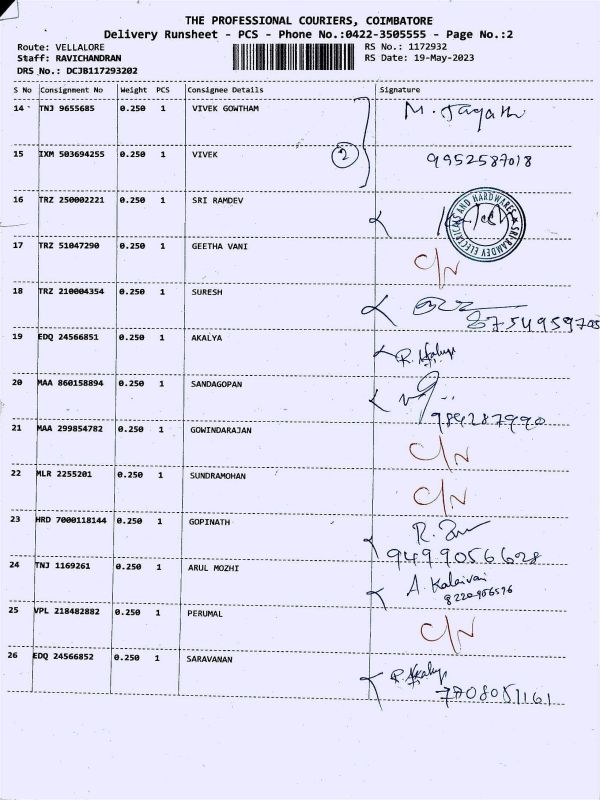 THE PROFESSIONAL COURIERS, COIMBATORE
Delivery Runsheet - PCS - Phone No.:0422-3505555 - Page No.:2
Route: VELLALORE RS No.: 1172932
Staff: RAVICHANDRAN RS Date: 19-May-2023
DRS No.: DCJB117293202
S No Consignment No Weight PCS Consignee Details Signature
14 TNJ 9655685 0.250 1 VIVEK GOWTHAM M.
15 IXM 503694255 0.250 1 VIVEK 2 9952587018
16 TRZ 250002221 0.250 1 SRI RAMDEV SRI RAMDEV ELECTRICALS AND HARDWARES
17 TRZ 51047290 0.250 1 GEETHA VANI C/N
18 TRZ 210004354 0.250 1 SURESH 8754959705
19 EDQ 24566851 0.250 1 AKALYA R. Akalya
20 MAA 860158894 0.250 1 SANDAGOPAN 984287990
21 MAA 299854782 0.250 1 GOWINDARAJAN C/N
22 MLR 2255201 0.250 1 SUNDRAMOHAN C/N
23 HRD 7000118144 0.250 1 GOPINATH R.
24 TNJ 1169261 0.250 1 ARUL MOZHI A. Kalaivani
25 VPL 218482882 0.250 1 PERUMAL C/N
26 EDQ 24566852 0.250 1 SARAVANAN R. Akalya
7708051161